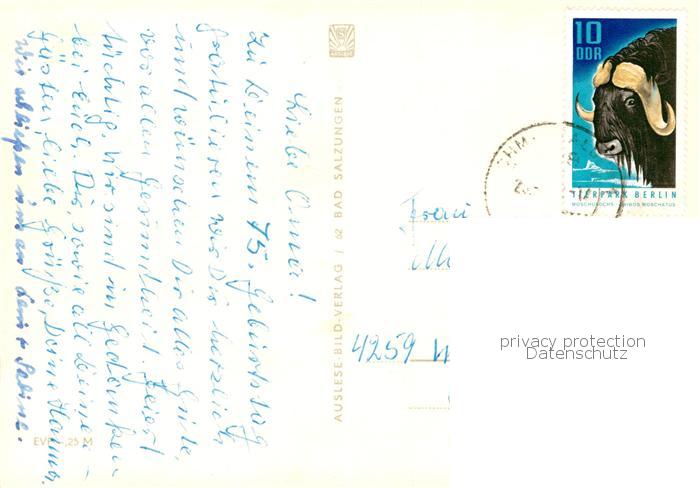 Liebe Oma!
Zu Deinem 75. Geburtstag
gratulieren wir Dir herzlich
und wünschen Dir alles Gute,
vor allem Gesundheit. Feiert
tüchtig, wir sind in Gedanken
bei Euch. Dir, sowie all Deinen
Gästen, liebe Grüße, Deine
wir schließen uns an
Sabine.
EVP -,25 M
AUSLESE-BILD-VERLAG / 62 BAD SALZUNGEN
10
DDR
TIERPARK BERLIN
MOSCHUSOCHS · OVIBOS MOSCHATUS
Frau
4259
privacy protection
Datenschutz